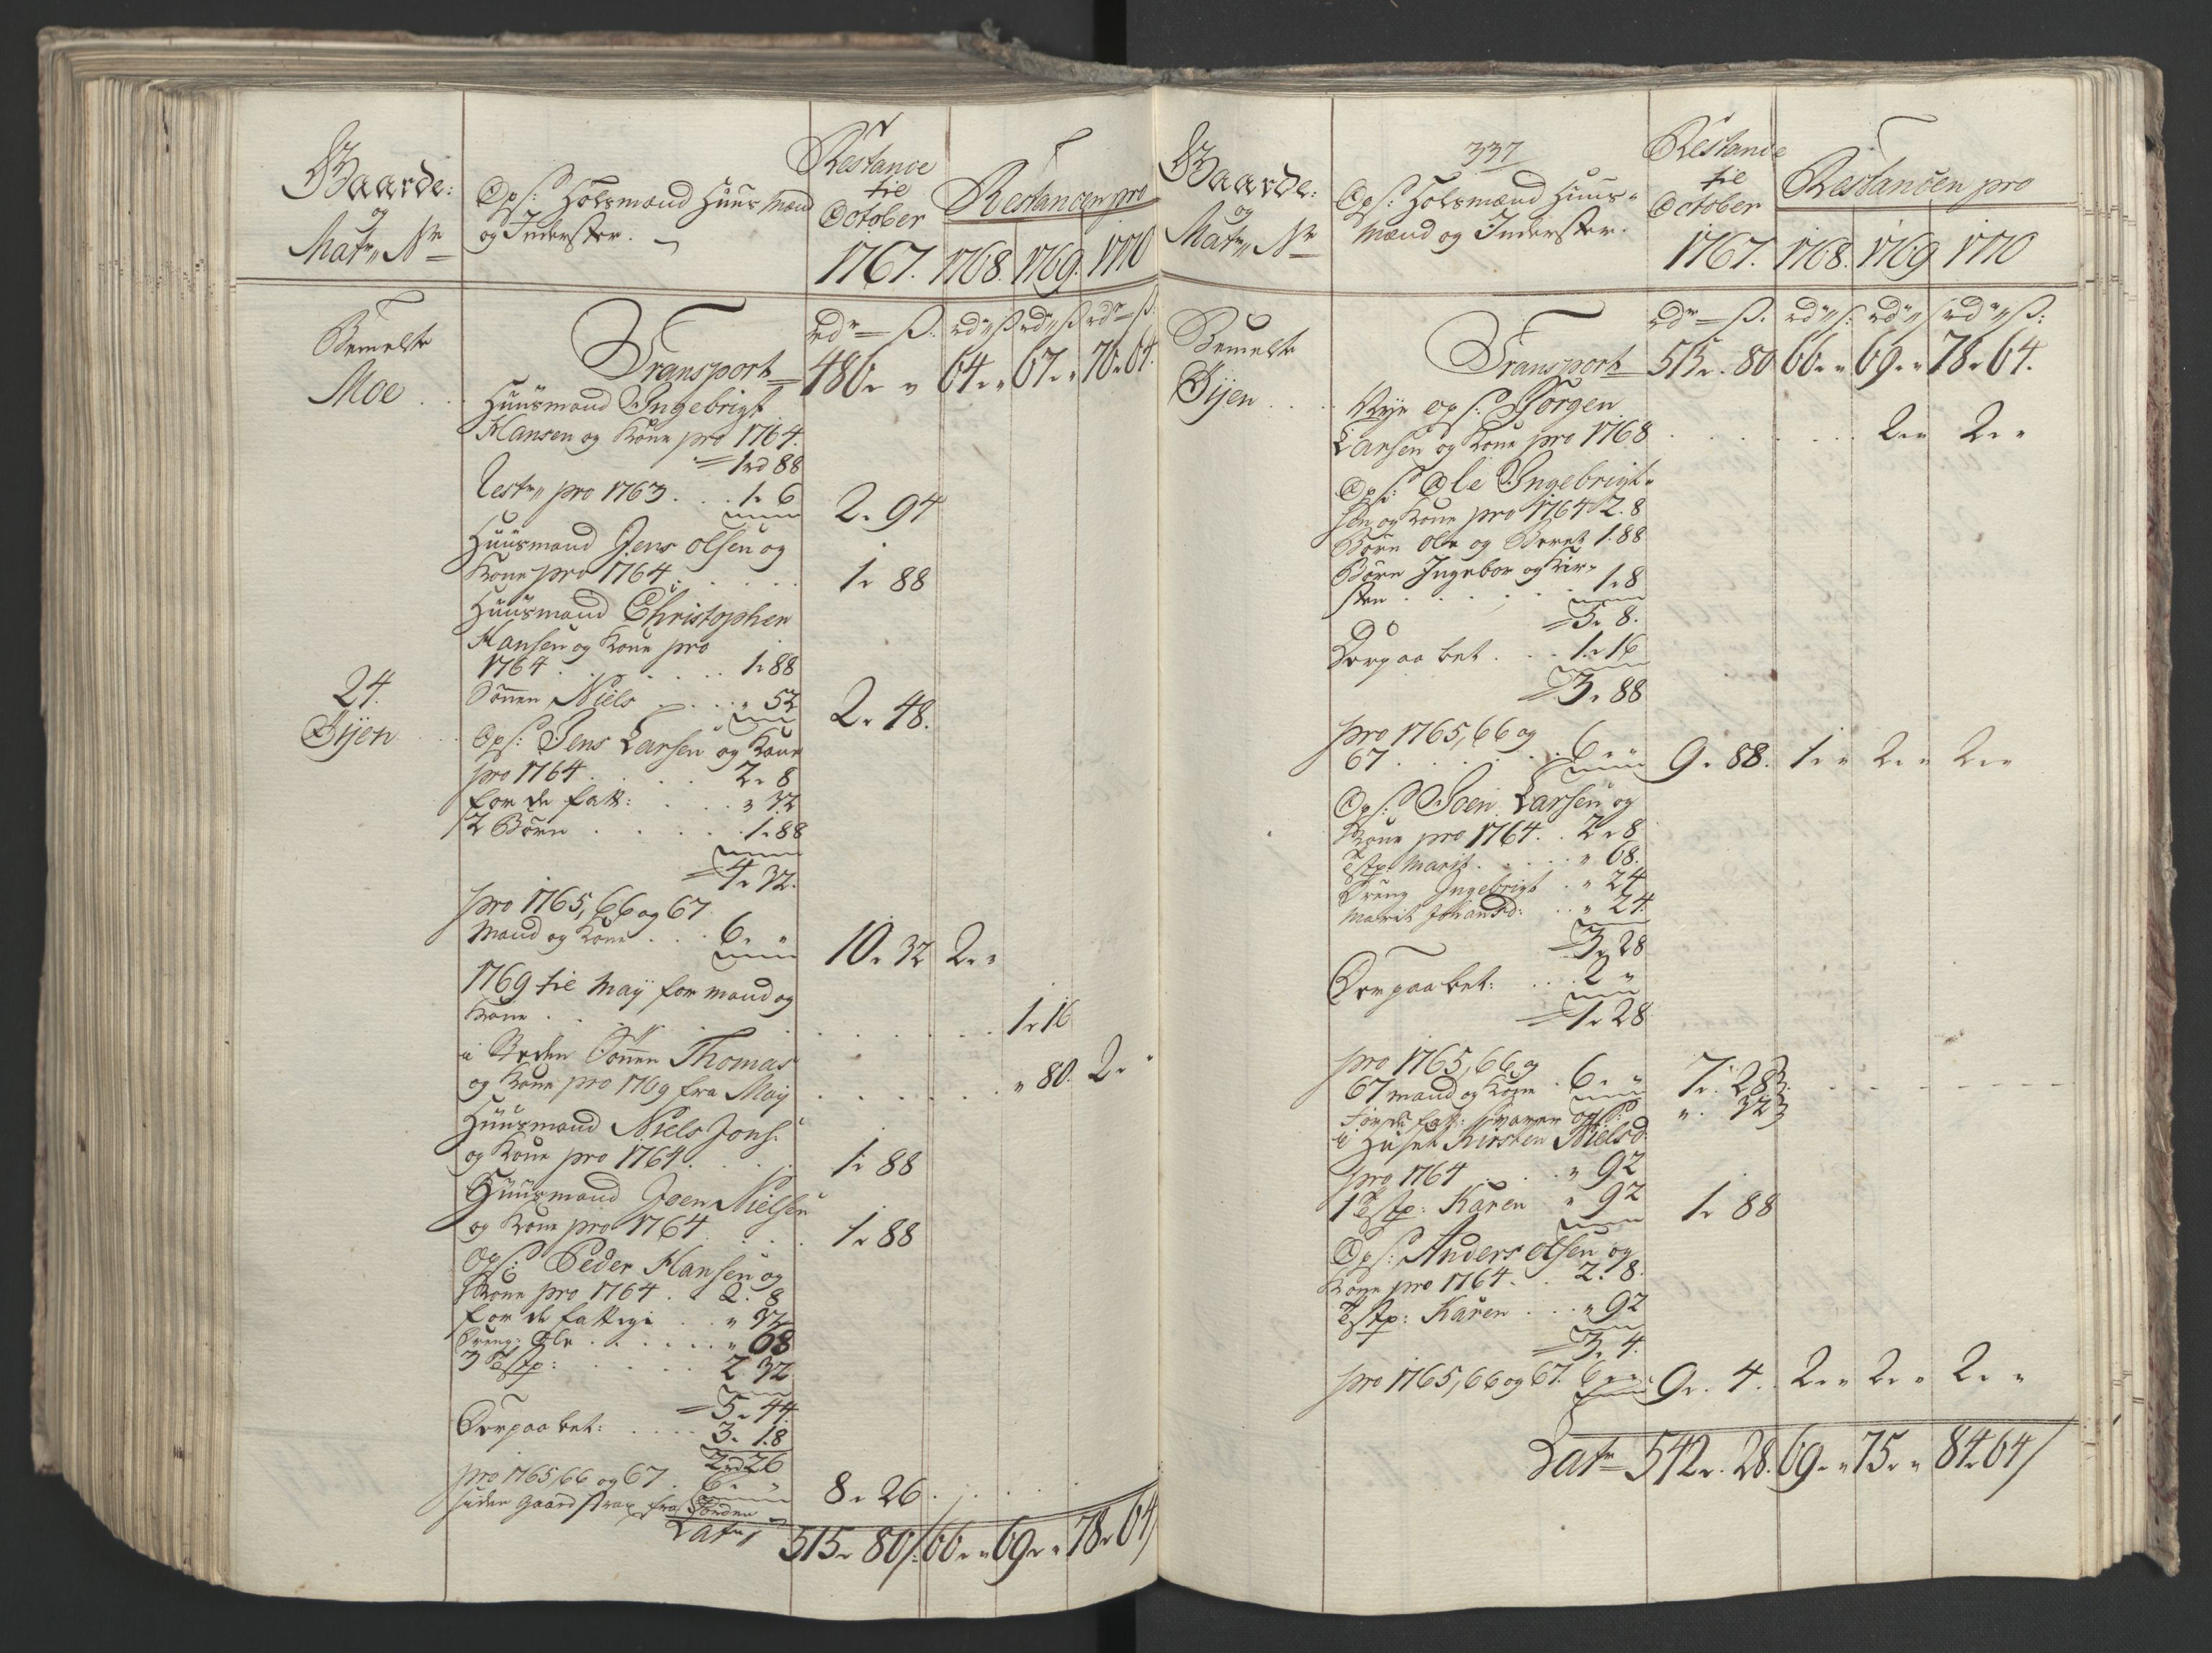 Gaarde:
og
Matr„ Nr
Ops: Holsmænd Huus Mænd
og Inderster.
Restance
til
October
1767.
Restancen pro
1768. 1769. 1770
Bemelte
Moe
Transport
rdr ß. rd„ß rd„ß rdr ß:
486„ „ 64„ „ 67„ „ 70„ 64.
Huusmand Ingebrigt
Hansen og Kone pro 1764.
1rd 88
Rest„ pro 1763 . . . 1„ 6
2„ 94
Huusmand Jens Olsen og
Kone pro 1764 . . . 1„ 88
Huusmand Christopher
Hansen og Kone pro
1764 . . . 1„ 88
Sønnen Niels . . . „ 52
2„ 48.
24.
Øijen
Ops: Jens Larsen og Kone
pro 1764 . . . 2„ 8
for de fatt: . . . „ 32
2 Børn . . . 1„ 88
4„ 32.
pro 1765, 66 og 67
Mand og Kone . . . 6„ „
10„ 32 2„ „
1769 til Maÿ for mand og
Kone . . . 1„ 16
i Steden Sønnen Thomas
og Kone pro 1769 fra Maÿ . . . „ 80. 2„ „
Huusmand Niels Jons:
og Kone pro 1764 . . . 1„ 88
Huusmand Joen Nielsen
og Kone pro 1764 . . . 1„ 88
Ops: Peder Hansen og
Kone pro 1764 . . 2„ 8
for de fattige . . „ 32
Dreng: Ole . . . „ 68
3 Tstp: . . . 2„ 32
5„ 44.
Derpaa bet: . . . 3„ 18
2rd 26
pro 1765, 66 og 67 . 6„ „
8„ 26
siden Gaard fra
Latr„ 515„ 80/: 66„ „ 69„ „ 78„ 64/
Gaarde:
og
Matr„ Nr
337
Ops: Holsmænd Huus-
Mænd og Inderster.
Restance
til
October
1767.
Restancen pro
1768. 1769 1770
Bemelte
Øijen
rdr ß. rd„ß: rd„ß rd„ß:
Transport 515„ 80 66„ „ 69„ „ 78„ 64.
Nye ops: Jørgen
Larsen og Kone pro 1768 . . . 2„ „ 2„ „
Ops: Ole Ingebrigt-
sen og Kone pro 1764 2„ 8
Børn Ole og Beret 1„ 88
Børn Ingebor og Kir-
sten . . . 1„ 8
5„ 8.
Derpaa bet . . . 1„ 16
3„ 88
pro 1765, 66 og
67 . . . 6„ „
9„ 88. 1„ „ 2„ „ 2„ „
Ops: Joen Larsen og
Kone pro 1764 . . 2„ 8
Tstp: Marit . . . „ 68.
Dreng Ingebrigt . „ 24
Marit Johansd: . . „ 24.
3„ 28
Derpaa bet: . . . 2 „
1„ 28
pro 1765, 66 og
67 mand og Kone . 6„ „ 7„ 28
for de fatt: svarer ops: „ 32
i Huset Kirsten Nielsd:
pro 1764 . . . „ 92
1 Tstp: Karen „ 92
1„ 88
Ops: Anders Olsen og
Kone pro 1764 . . 2„ 8.
Tstp: Karen . . . „ 92
3„ 4.
pro 1765, 66 og 67. 6„ „ 9„ 4. 2„ „ 2„ „ 2„ „
Latr 542„ 28. 69„ „ 75„ „ 84„ 64/